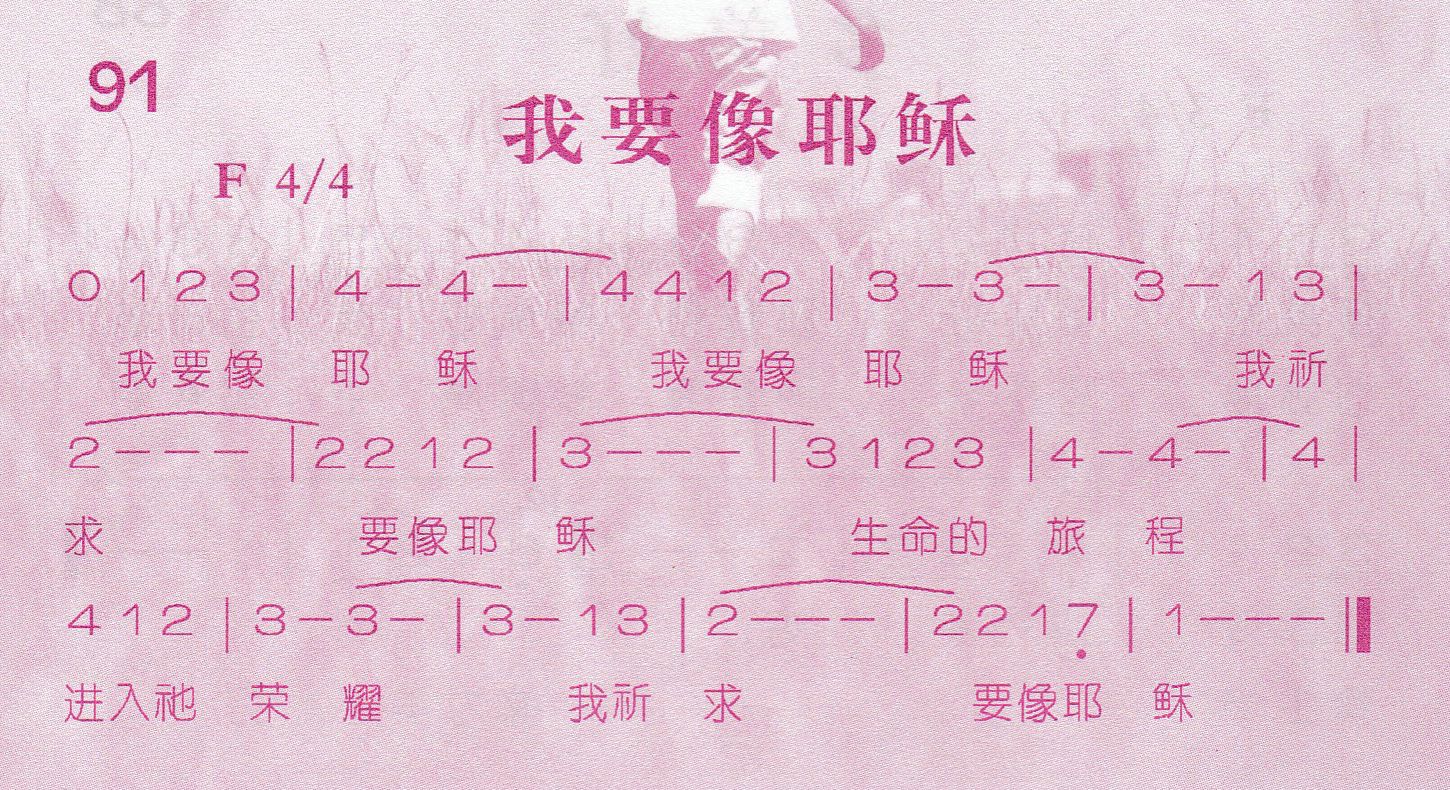 91
我要像耶稣
F 4/4
0 1 2 3 | 4 - 4 - | 4 4 1 2 | 3 - 3 - | 3 - 1 3 |
我要像 耶 稣 我要像 耶 稣 我祈
2 - - - | 2 2 1 2 | 3 - - - | 3 1 2 3 | 4 - 4 - | 4 |
求 要像耶 稣 生命的 旅 程
4 1 2 | 3 - 3 - | 3 - 1 3 | 2 - - - | 2 2 1 7̣ | 1 - - - ‖
进入祂 荣 耀 我祈 求 要像耶 稣